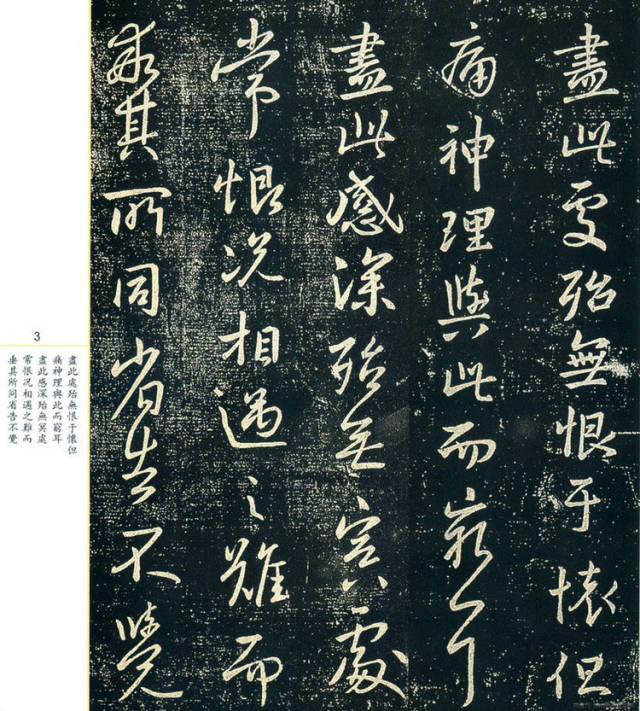 盡此處殆無恨于懷但
痛神理與此而窮耳
盡此感深殆無冥處
常恨况相遇之難而
乖其所同省告不覺
3
盡此處殆無恨于懷但
痛神理與此而窮耳
盡此感深殆無冥處
常恨况相遇之難而
乖其所同省告不覺